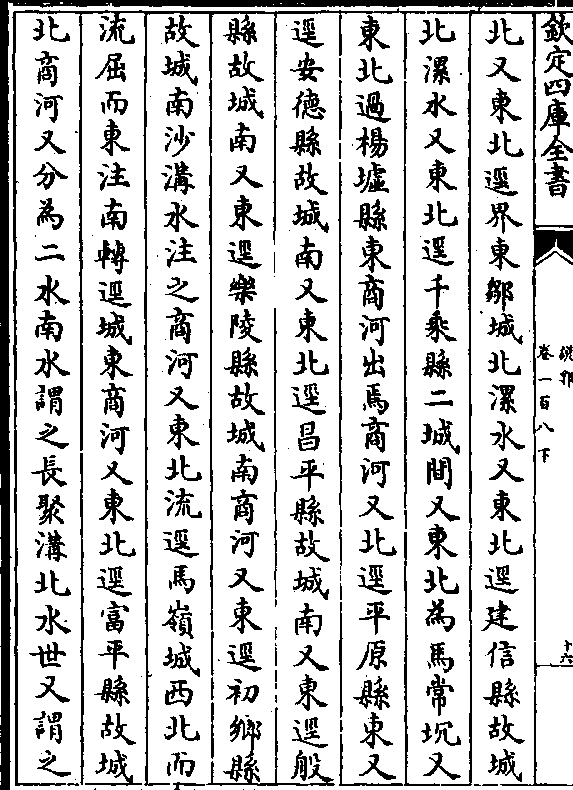 欽定四庫全書
說郛
卷一百八下
十六
北又東北逕界東鄒城北漯水又東北逕建信縣故城
北漯水又東北逕千乘縣二城間又東北為馬常坈又
東北過楊墟縣東商河出焉商河又北逕平原縣東又
逕安德縣故城南又東北逕昌平縣故城南又東逕般
縣故城南又東逕樂陵縣故城南商河又東逕初鄉縣
故城南沙溝水注之商河又東北流逕馬嶺城西北而
流屈而東注南轉逕城東商河又東北逕富平縣故城
北商河又分為二水南水謂之長聚溝北水世又謂之